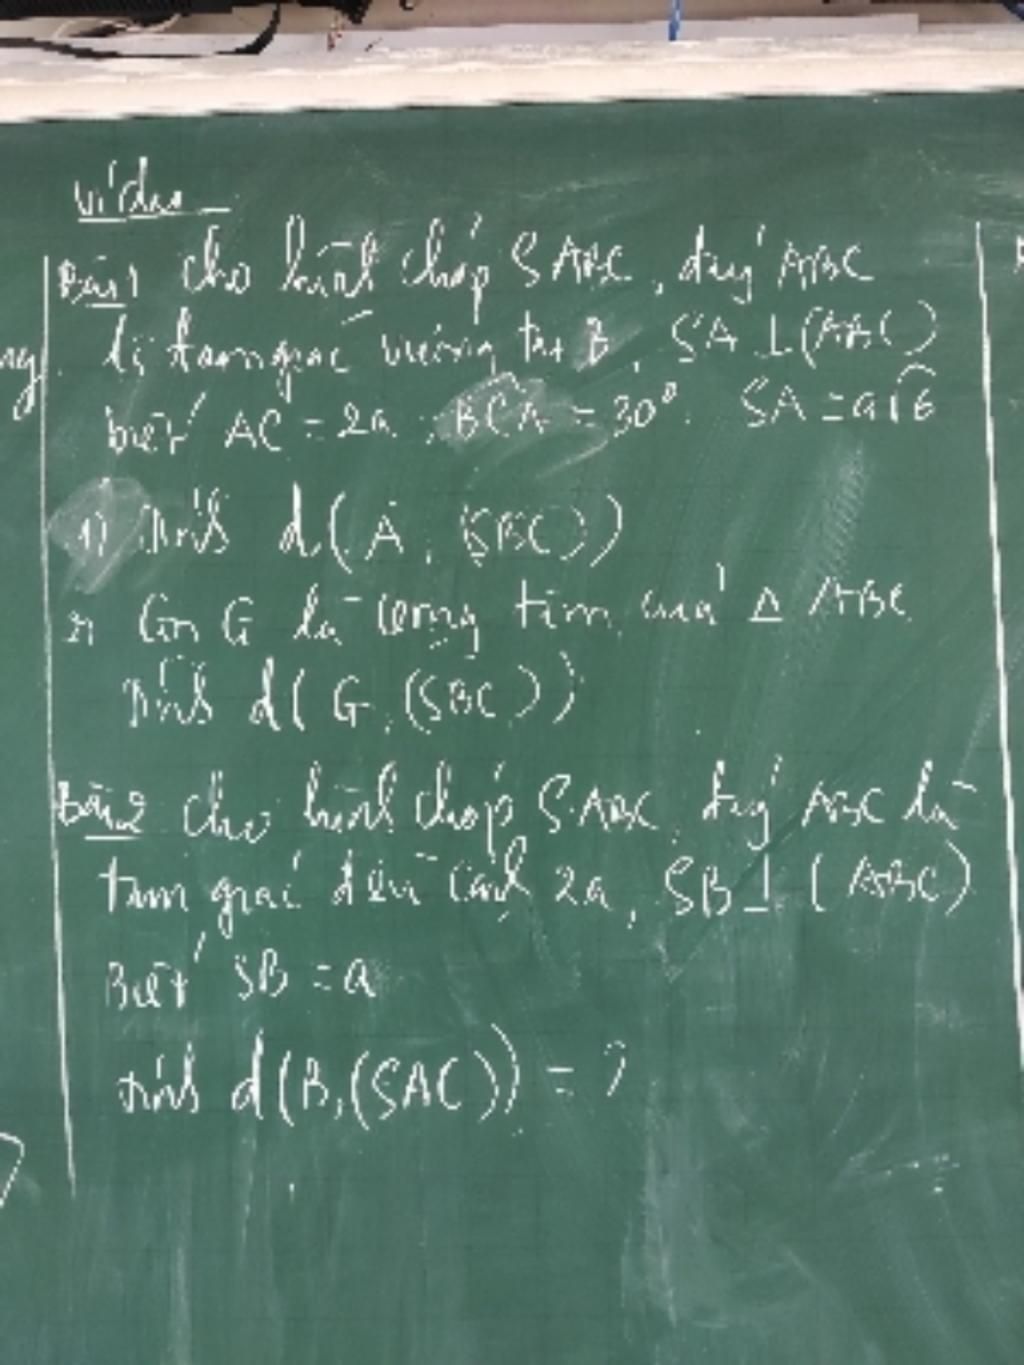 Ví dụ
Bài 1 Cho hình chóp SABC, đáy ABC
là tam giác vuông tại B, SA ⊥ (ABC)
biết AC = 2a, BCA = 30°. SA = a√6
1) Tính d(A, (SBC))
2) Gọi G là trọng tâm của Δ ABC
Tính d(G, (SBC))
Bài 2 Cho hình chóp S.ABC, đáy ABC là
tam giác đều cạnh 2a, SB ⊥ (ABC)
Biết SB = a
Tính d(B, (SAC)) = ?